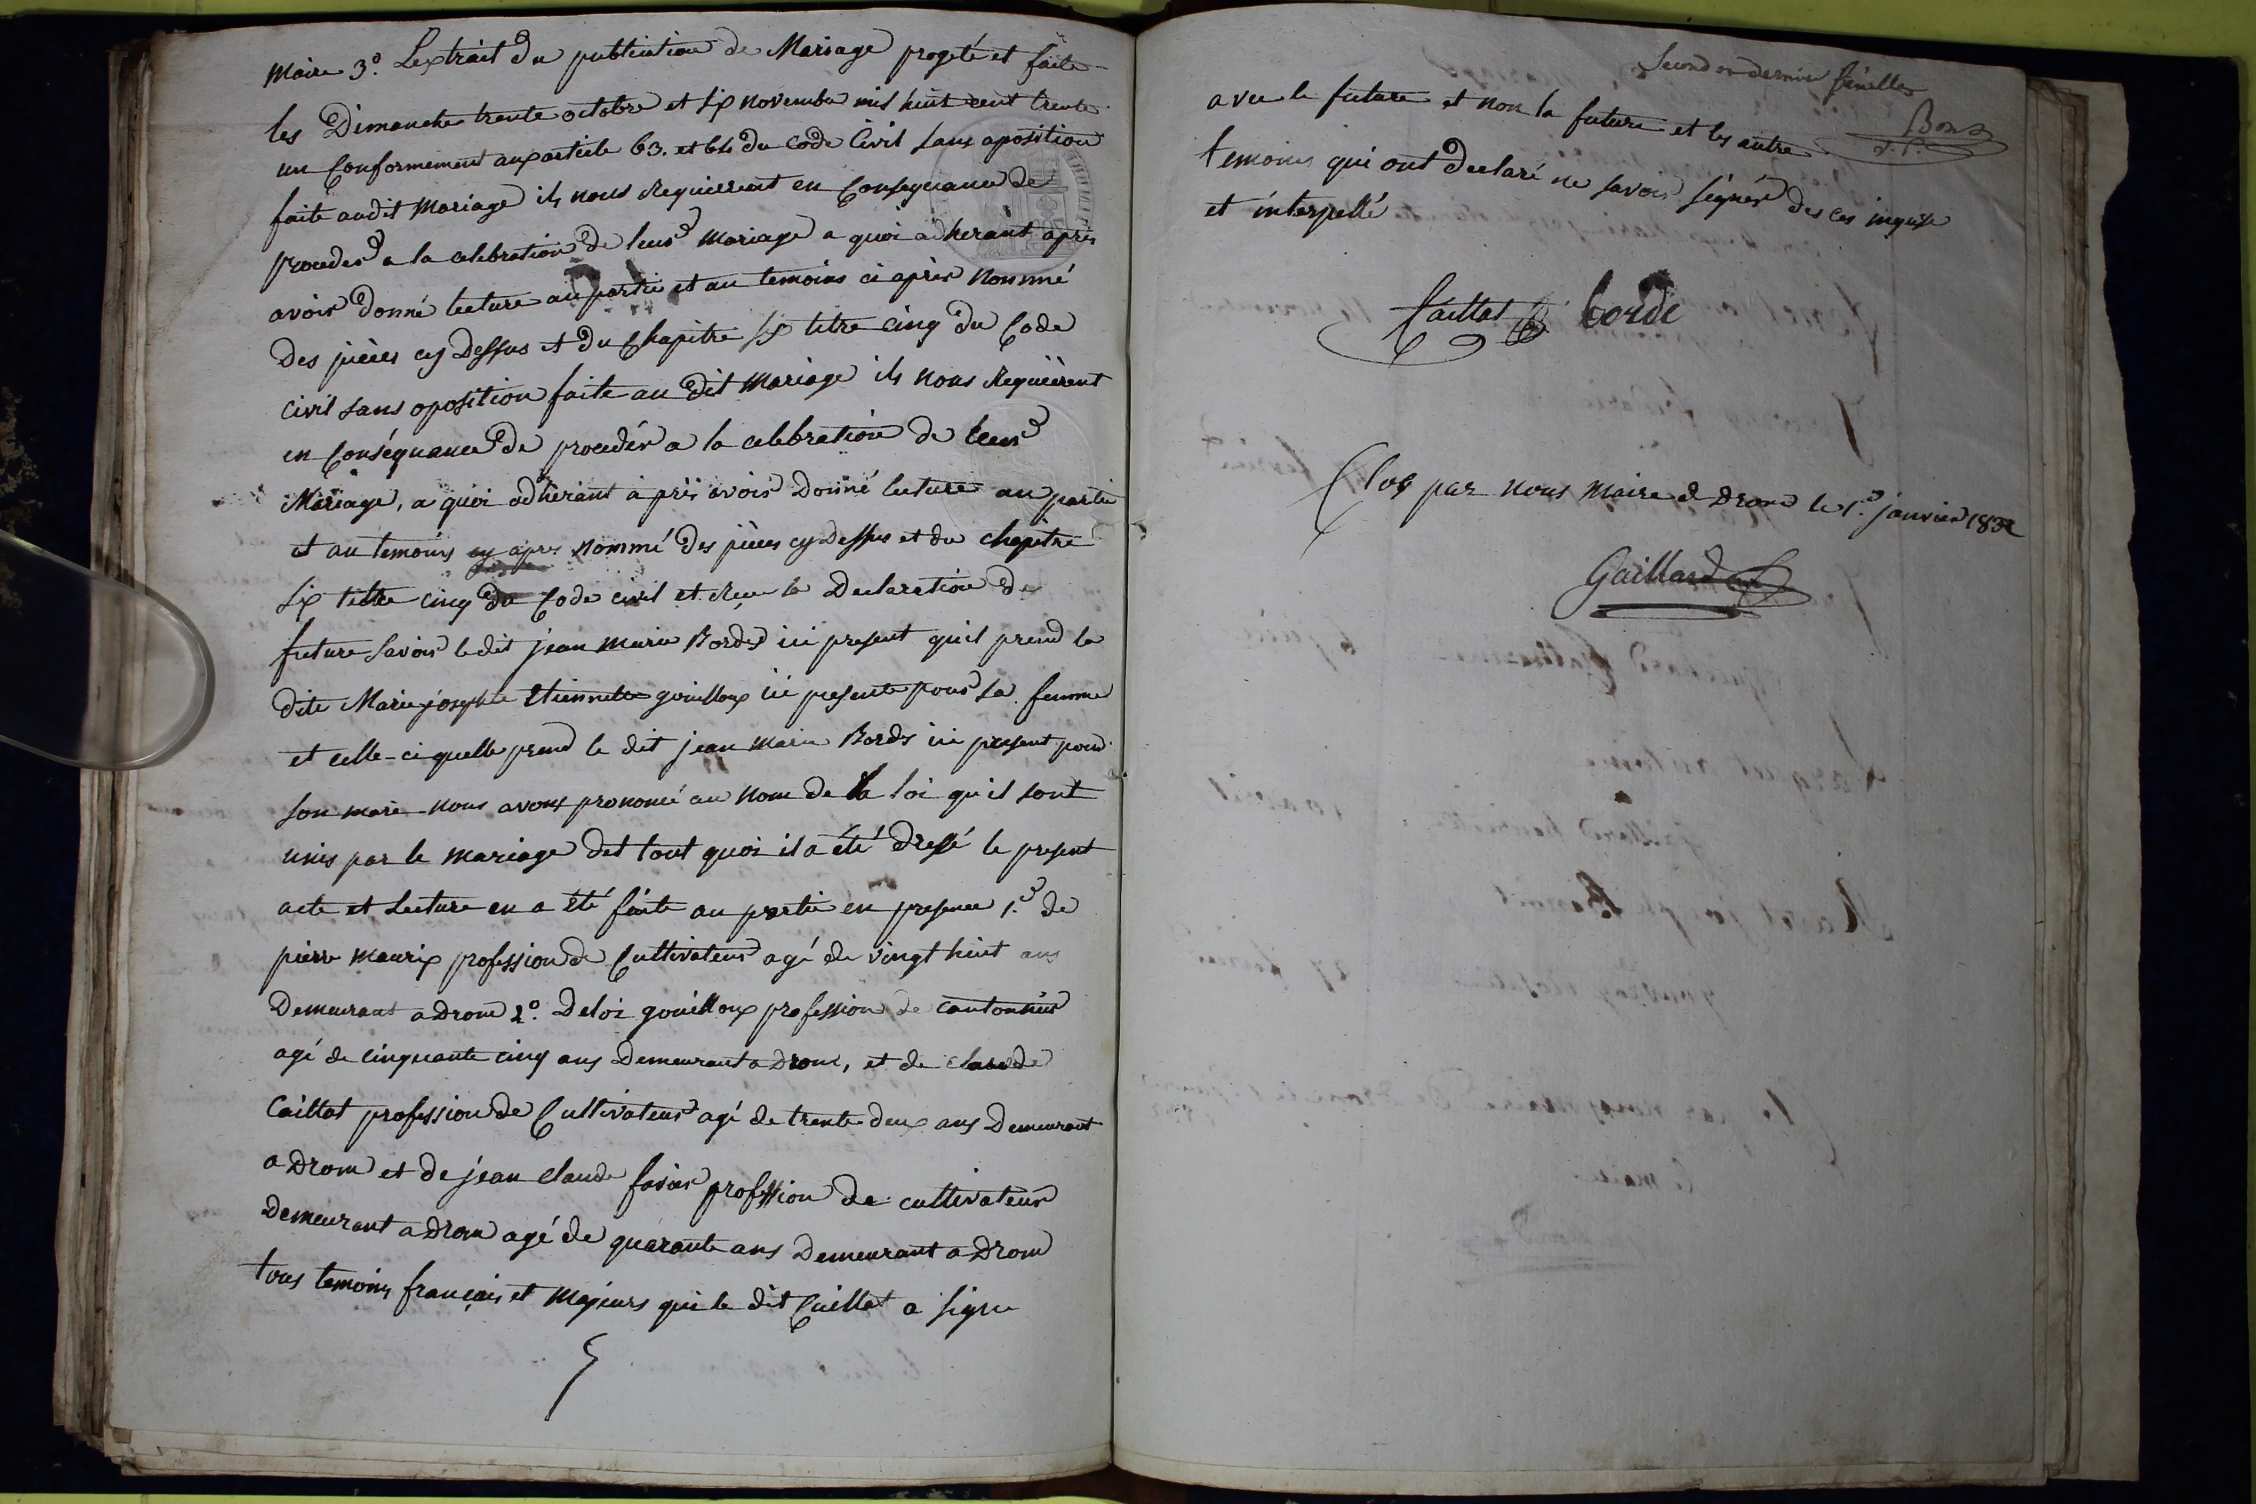 Maire 3.° L'extrait du publication de Mariage progeté et faite
les Dimanche trente octobre et six novembre mil huit cent trente
un Conformement aux article 63. et 64 du Code Civil sans aposition
faite audit Mariage ils nous Requierent en Consequance de
proceder a la celebration de leur mariage a quoi adherant après
avoir donné lecture au partie et au temoins ci après Nommé
des pièces cy Dessus et du Chapitre six titre cinq du Code
Civil sans oposition faite au dit Mariage ils nous Requièrent
en Conséquance de procedér a la celebration de leur
Mariage, a quoi adhérant après avoir Donné lecture au partie
et au temoins cy apres Nommé des pièces cy Dessus et du chapitre
six titre cinq du Code civil et Reçu la Declaration de
future savoir le dit jean marie Bordes ici present qu'il prend la
dite Marie josephte Etiennette gouilloux ici presente pour sa femme
et celle-ci quelle prend le dit jean Marie Bords ici present pour
son mari nous avons prononcé au nom de la loi qu'il sont
unis par le mariage det tout quoi il a été dressé le present
acte et Lecture en a été faite au partie en presence 1.er de
pierre Maurix profession de Cultivateur agé de vingt huit ans
Demeurant a Drom 2.° Deloi gouilloux profession de cantonnier
agé de cinquante cinq ans Demeurant a Drom, et de claude
Caillat profession de Cultivateur agé de trente deux ans Demeurant
a Drom et de jean claude profession de cultivateur
Demeurant a Drom agé de quarante ans Demeurant a Drom
tous temoins français et Majeurs qui le dit Caillat a signe
Second et dernier
avec le future et non la future et les autre
temoins qui ont declaré ne savoir signér des ces
et interpellé
Caillat borde
Clos par nous Maire d Drom le 1.er janvier 1832
Gaillard